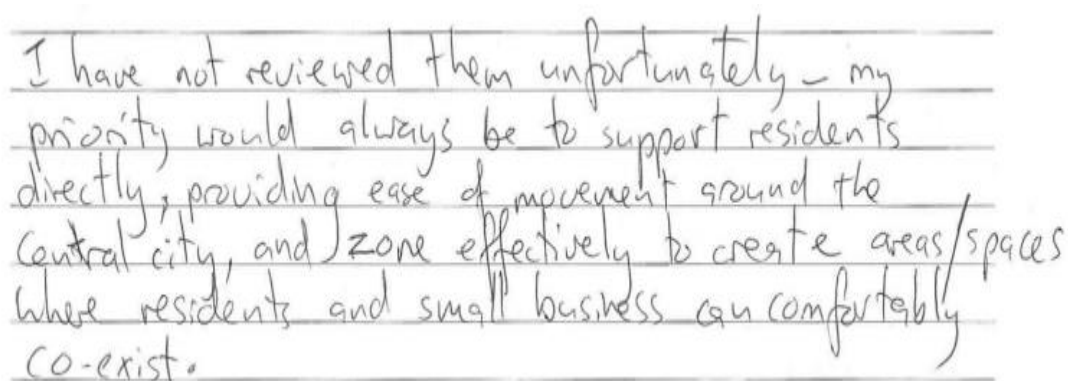 I have not reviewed them unfortunately - my
priority would always be to support residents
directly, providing ease of movement around the
central city, and zone effectively to create areas/spaces
where residents and small business can comfortably
co-exist.